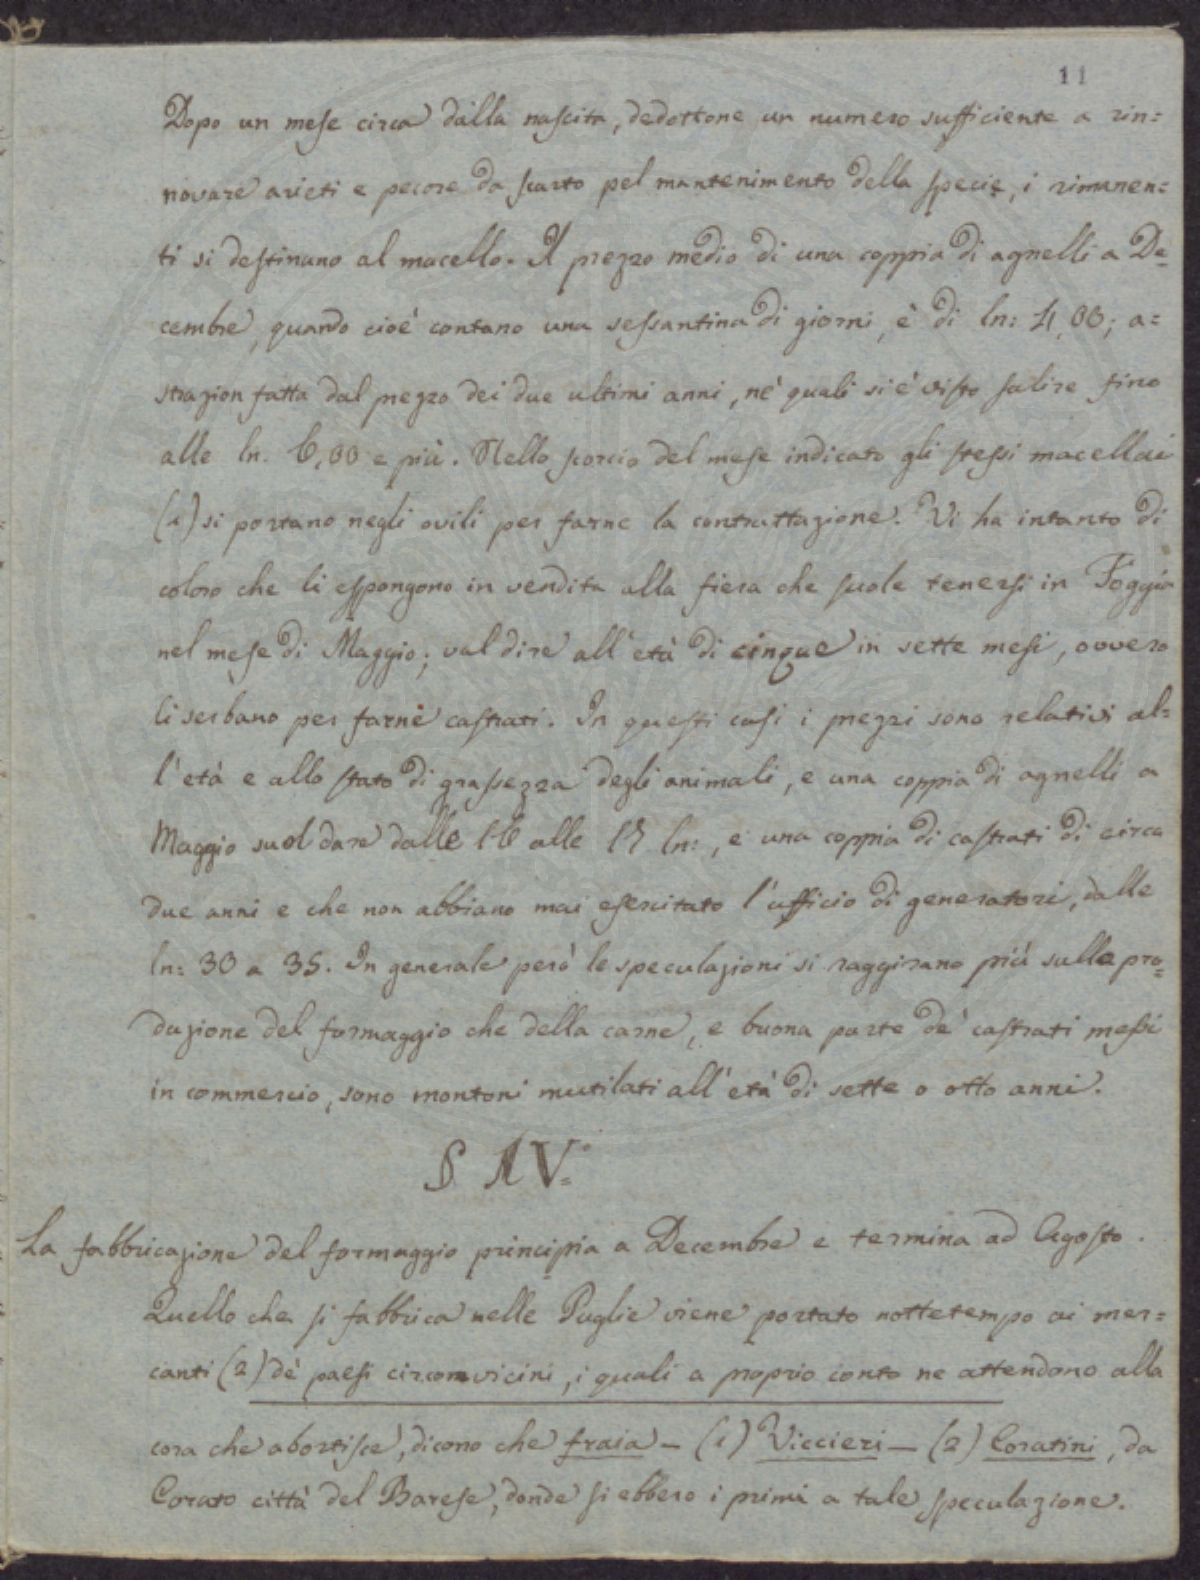 11
Dopo un mese circa dalla nascita, dedottone un numero sufficiente a rin=
novare arieti e pecore da scarto pel mantenimento della specie, i rimanen=
ti si destinano al macello. Il prezzo medio di una coppia di agnelli a De=
cembre, quando cioè contano una sessantina di giorni, è di ln: 4,00; a=
strazion fatta dal prezzo dei due ultimi anni, ne' quali si è visto salire fino
alle ln. 6,00 e più. Nello scorcio del mese indicato gli stessi macellai
(1) si portano negli ovili per farne la contrattazione. Vi ha intanto di
coloro che li espongono in vendita alla fiera che suole tenersi in Foggia
nel mese di Maggio; val dire all'età di cinque in sette mesi, ovvero
li serbano per farne castrati. In questi casi i prezzi sono relativi al=
l'età e allo stato di grassezza degli animali, e una coppia di agnelli a
Maggio suol dare dalle 16 alle 17 ln:, e una coppia di castrati di circa
due anni e che non abbiano mai esercitato l'ufficio di generatori, dalle
ln: 30 a 35. In generale però le speculazioni si raggirano più sulla pro=
duzione del formaggio che della carne, e buona parte de' castrati messi
in commercio, sono montoni mutilati all'età di sette o otto anni.
§ IV.
La fabbricazione del formaggio principia a Decembre e termina ad Agosto.
Quello che si fabbrica nelle Puglie viene portato nottetempo ai mer=
canti (2) de' paesi circonvicini, i quali a proprio conto ne attendono alla
cora che abortisce, dicono che fraia – (1) Viccieri – (2) Coratini, da
Corato città del Barese, donde si ebbero i primi a tale speculazione.